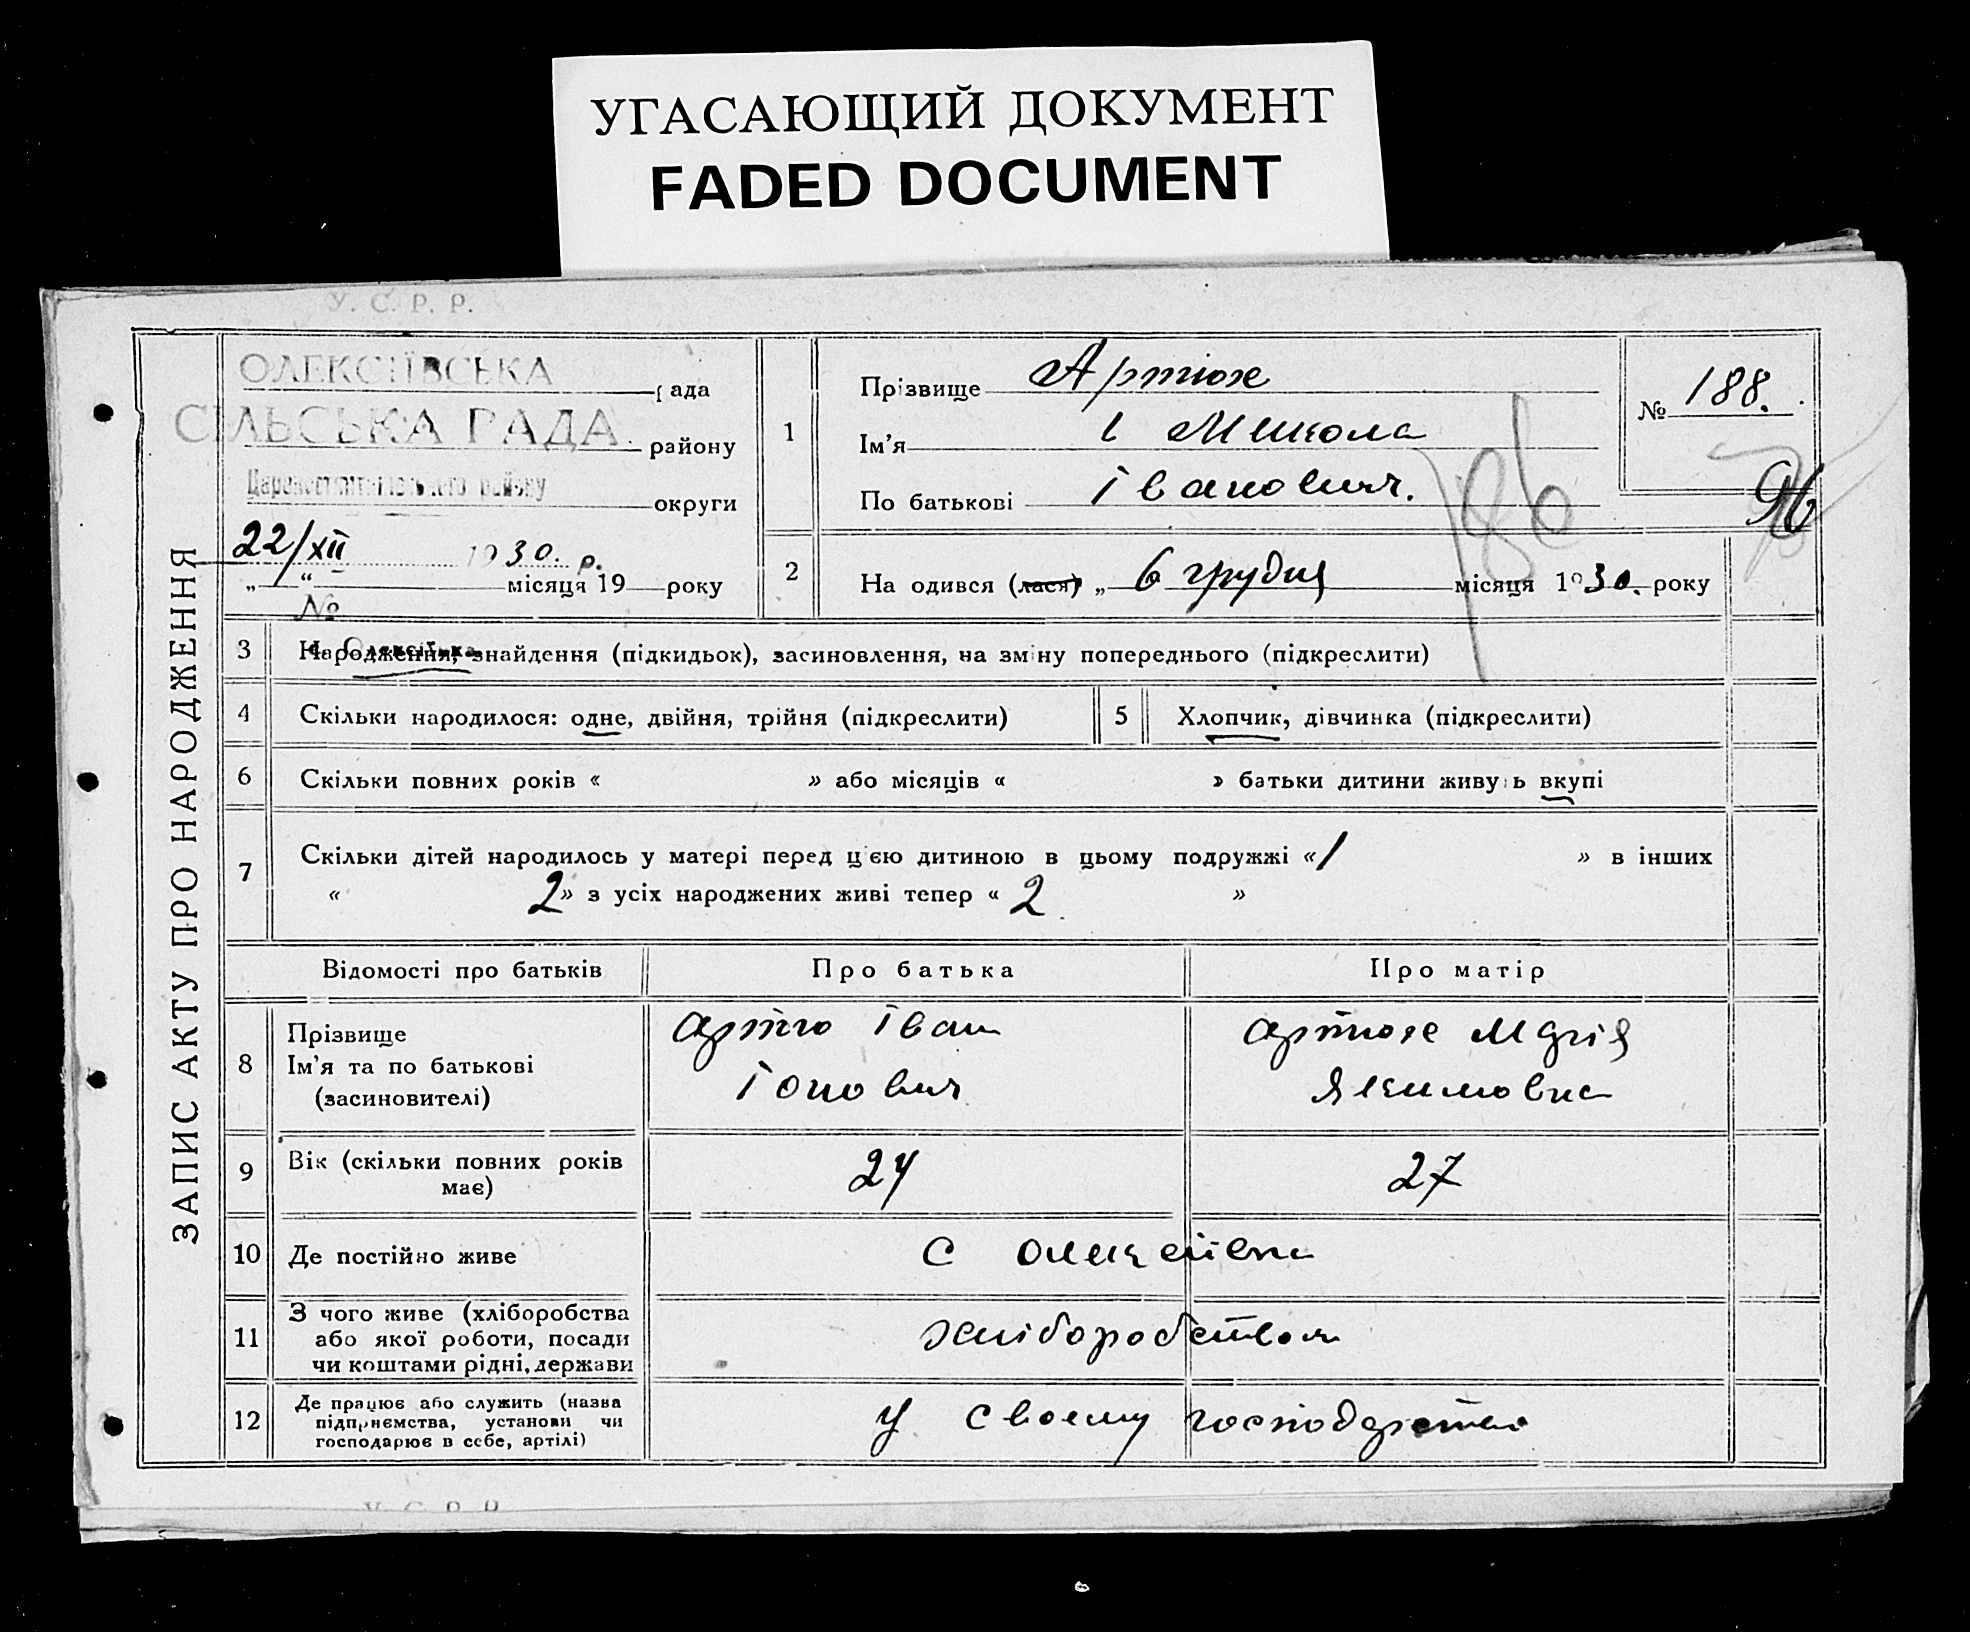 УГАСАЮЩИЙ ДОКУМЕНТ
FADED DOCUMENT
У. С. Р. Р.
ЗАПИС АКТУ ПРО НАРОДЖЕННЯ
ОЛЕКСІЇВСЬКА
рада
СІЛЬСЬКА РАДА
району
району
округи
22/XII 1930. р.
„ “ місяця 19 року
№
с. Олексіївка
1
Прізвище Артюх
Ім’я Микола
По батькові Іванович.
№ 188.
186
96
2
На одився (лася) „ 6 грудня місяця 1930. року
3 Народження, знайдення (підкидьок), засиновлення, на зміну попереднього (підкреслити)
4 Скільки народилося: одне, двійня, трійня (підкреслити)
5 Хлопчик, дівчинка (підкреслити)
6 Скільки повних років « » або місяців « » батьки дитини живуть вкупі
7 Скільки дітей народилось у матері перед цією дитиною в цьому подружжі « 1 » в інших
« 2 » з усіх народжених живі тепер « 2 »
Відомості про батьків Про батька Про матір
8 Прізвище
Ім’я та по батькові
(засиновителі)
Артю Іван
Артюх Марія
Якимовна
9 Вік (скільки повних років
має)
24 27
10 Де постійно живе с Олексіївка
11 З чого живе (хліборобства
або якої роботи, посади
чи коштами рідні, держави
хліборобством
12 Де працює або служить (назва
підприємства, установи чи
господарює в себе, артілі)
у своему господарстві
У С Р Р